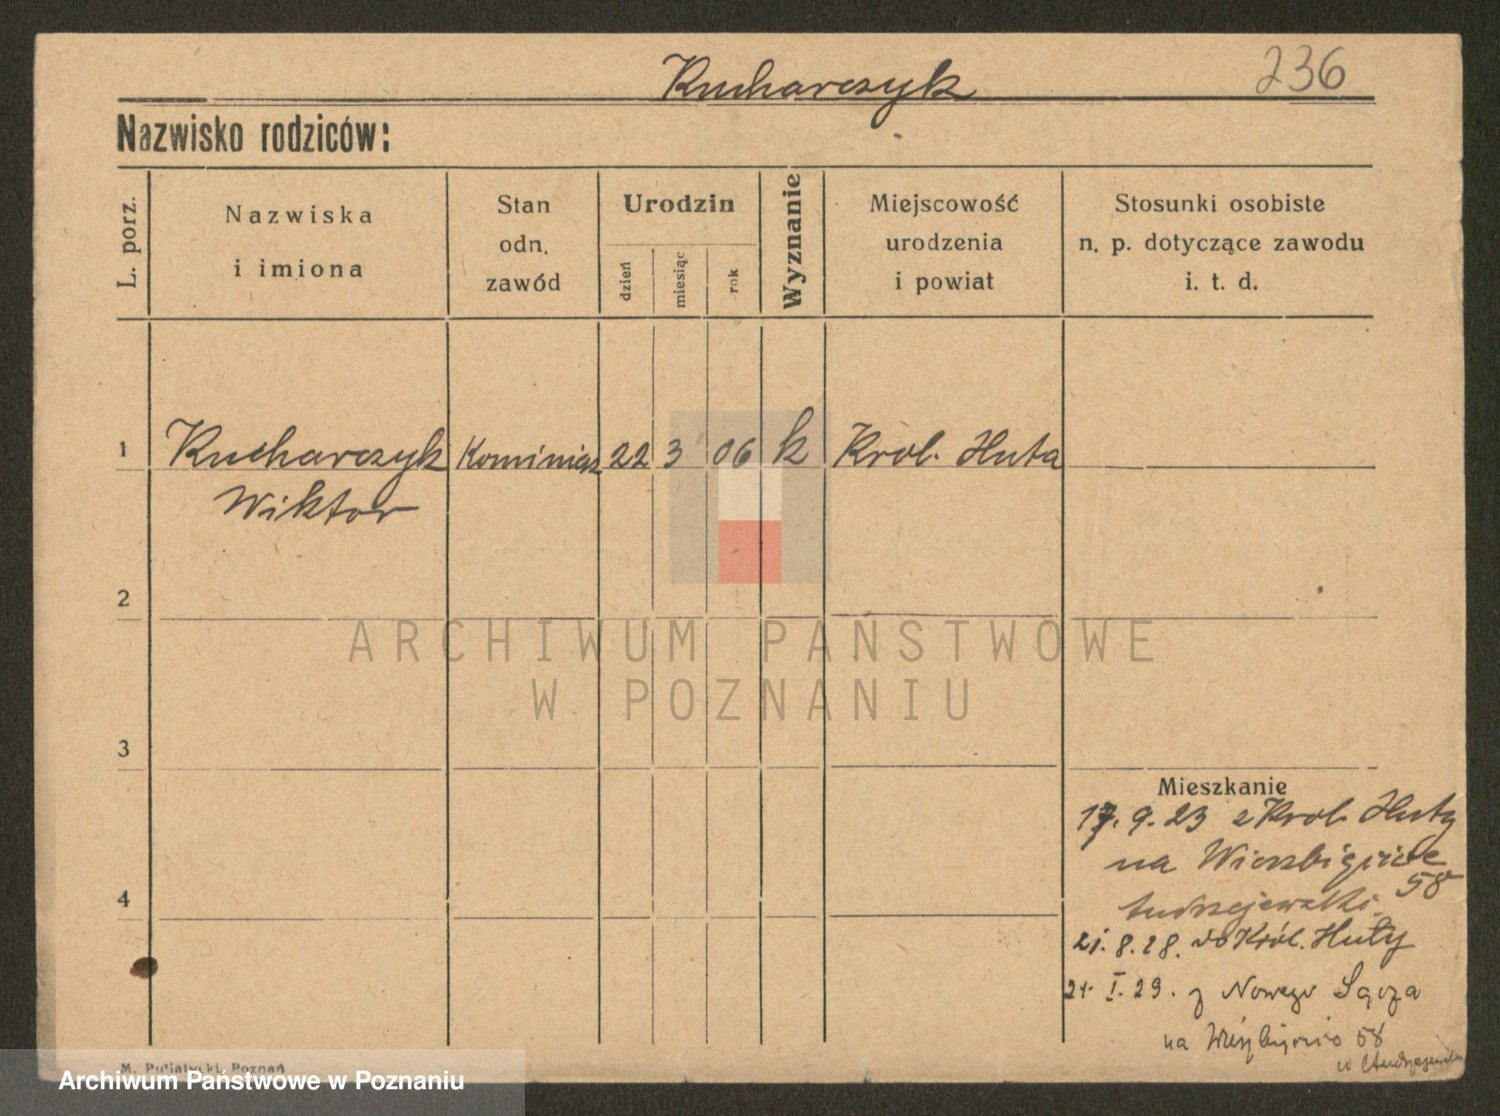 Kucharczyk
236
Nazwisko rodziców:
L. porz.
Nazwiska
i imiona
Stan
odn.
zawód
Urodzin
dzień
miesiąc
rok
Wyznanie
Miejscowość
urodzenia
i powiat
Stosunki osobiste
n. p. dotyczące zawodu
i. t. d.
1 Kucharczyk Kominiarz 22 3 06 k Krol. Huta
Wiktor
2
ARCHIWUM PAŃSTWOWE
W POZNANIU
3
Mieszkanie
17. 9. 23 z Krol. Huty
4
na Wierzbięcice
58
Andrzejewski
21. 8. 28. do Król. Huty
21. I. 29. z Nowego Sącza
na Wierzbięcice 58
M. Putiatycki, Poznań
Archiwum Państwowe w Poznaniu